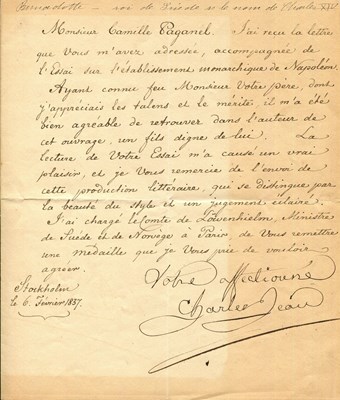 Bernadotte — roi de Suède s. le nom de Charles XIV
Monsieur Camille Paganel. J'ai reçu la lettre
que Vous m'avez adressée, accompagnée de
l'Essai sur l'établissement monarchique de Napoléon.
Ayant connu feu Monsieur Votre père, dont
j'appréciais les talens et le mérite, il m'a été
bien agréable de retrouver dans l'auteur de
cet ouvrage, un fils digne de lui. La
lecture de Votre Essai m'a causé un vrai
plaisir, et je Vous remercie de l'envoi de
cette production littéraire, qui se distingue par
la beauté du style et un jugement éclairé.
J'ai chargé le Comte de Löwenhielm, Ministre
de Suède et de Norvège à Paris, de Vous remettre
une medaille que je Vous prie de vouloir
agréer.
Votre affectionné
Charles Jean
Stockholm
le 6. Février 1837.